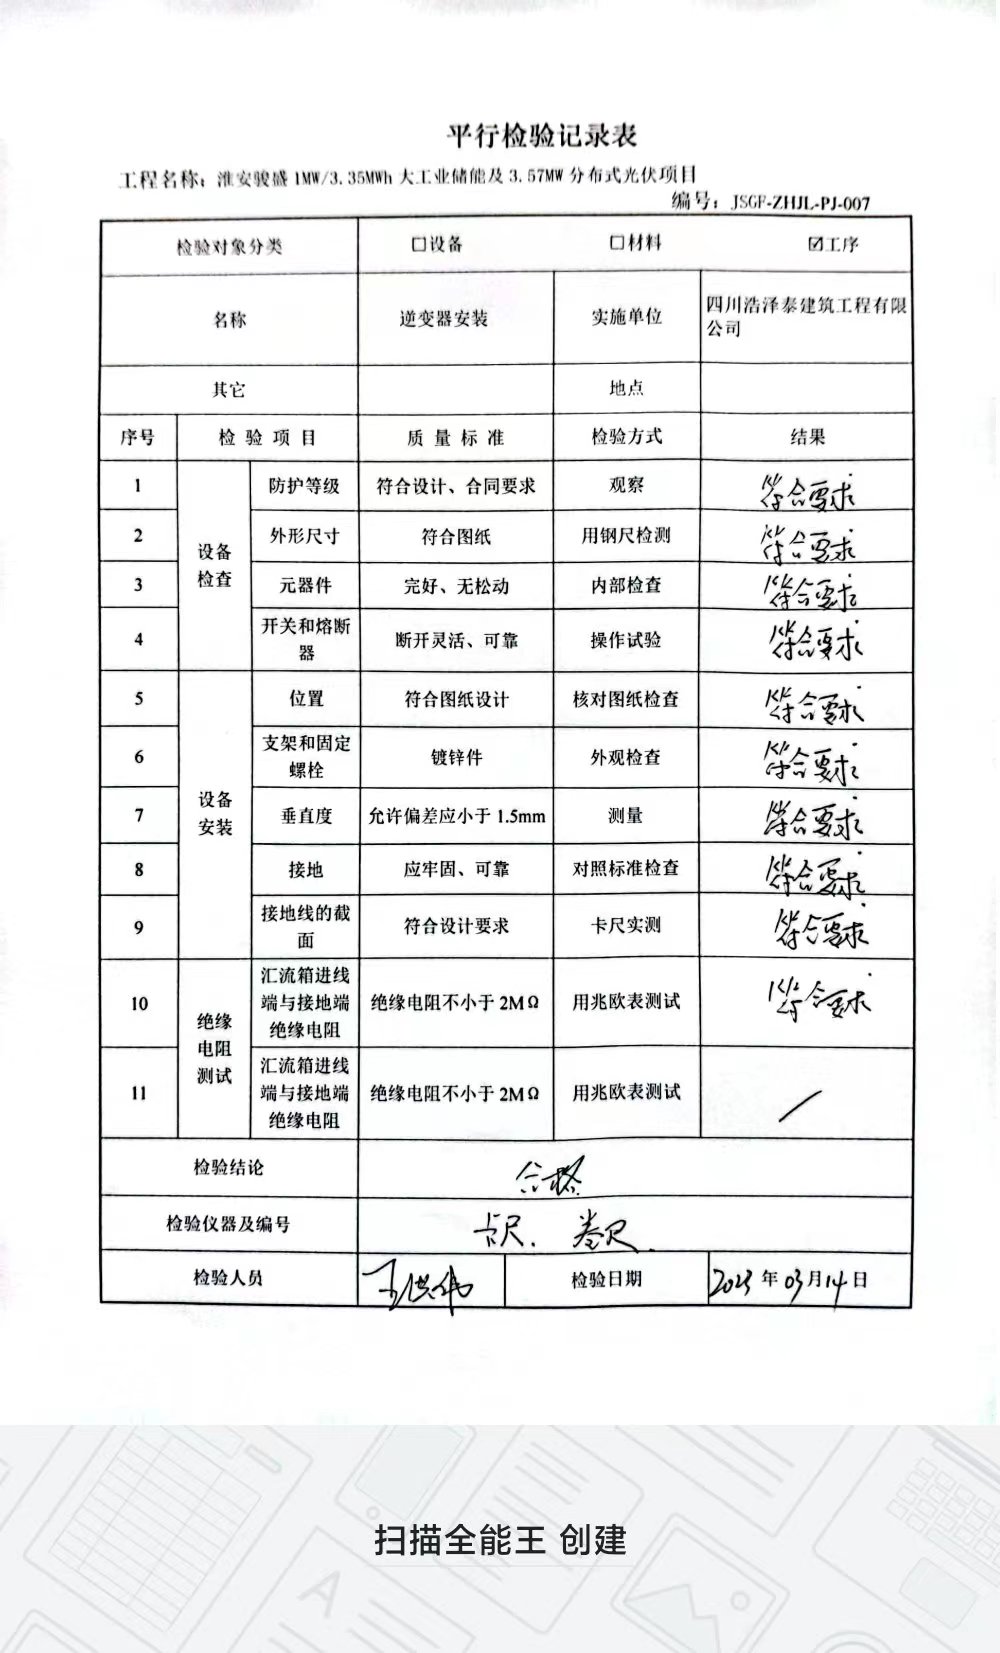 平行检验记录表
工程名称：淮安骏盛 1MW/3.35MWh 大工业储能及 3.57MW 分布式光伏项目
编号：JSGF-ZHJL-PJ-007
检验对象分类 ☐设备 ☐材料 ☑工序
名称 逆变器安装 实施单位 四川浩泽泰建筑工程有限
公司
其它 地点
序号 检 验 项 目 质 量 标 准 检验方式 结果
设备
检查
1 防护等级 符合设计、合同要求 观察 符合要求
2 外形尺寸 符合图纸 用钢尺检测 符合要求
3 元器件 完好、无松动 内部检查 符合要求
4 开关和熔断
器 断开灵活、可靠 操作试验 符合要求
设备
安装
5 位置 符合图纸设计 核对图纸检查 符合要求
6 支架和固定
螺栓 镀锌件 外观检查 符合要求
7 垂直度 允许偏差应小于 1.5mm 测量 符合要求
8 接地 应牢固、可靠 对照标准检查 符合要求
9 接地线的截
面 符合设计要求 卡尺实测 符合要求
绝缘
电阻
测试
10 汇流箱进线
端与接地端
绝缘电阻 绝缘电阻不小于 2MΩ 用兆欧表测试 符合要求
11 汇流箱进线
端与接地端
绝缘电阻 绝缘电阻不小于 2MΩ 用兆欧表测试 /
检验结论 合格
检验仪器及编号 卡尺、卷尺
检验人员 王洪伟 检验日期 2023 年 03 月 14 日
扫描全能王 创建